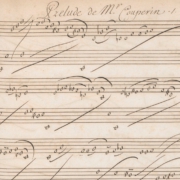 Prelude de Mr Couperin